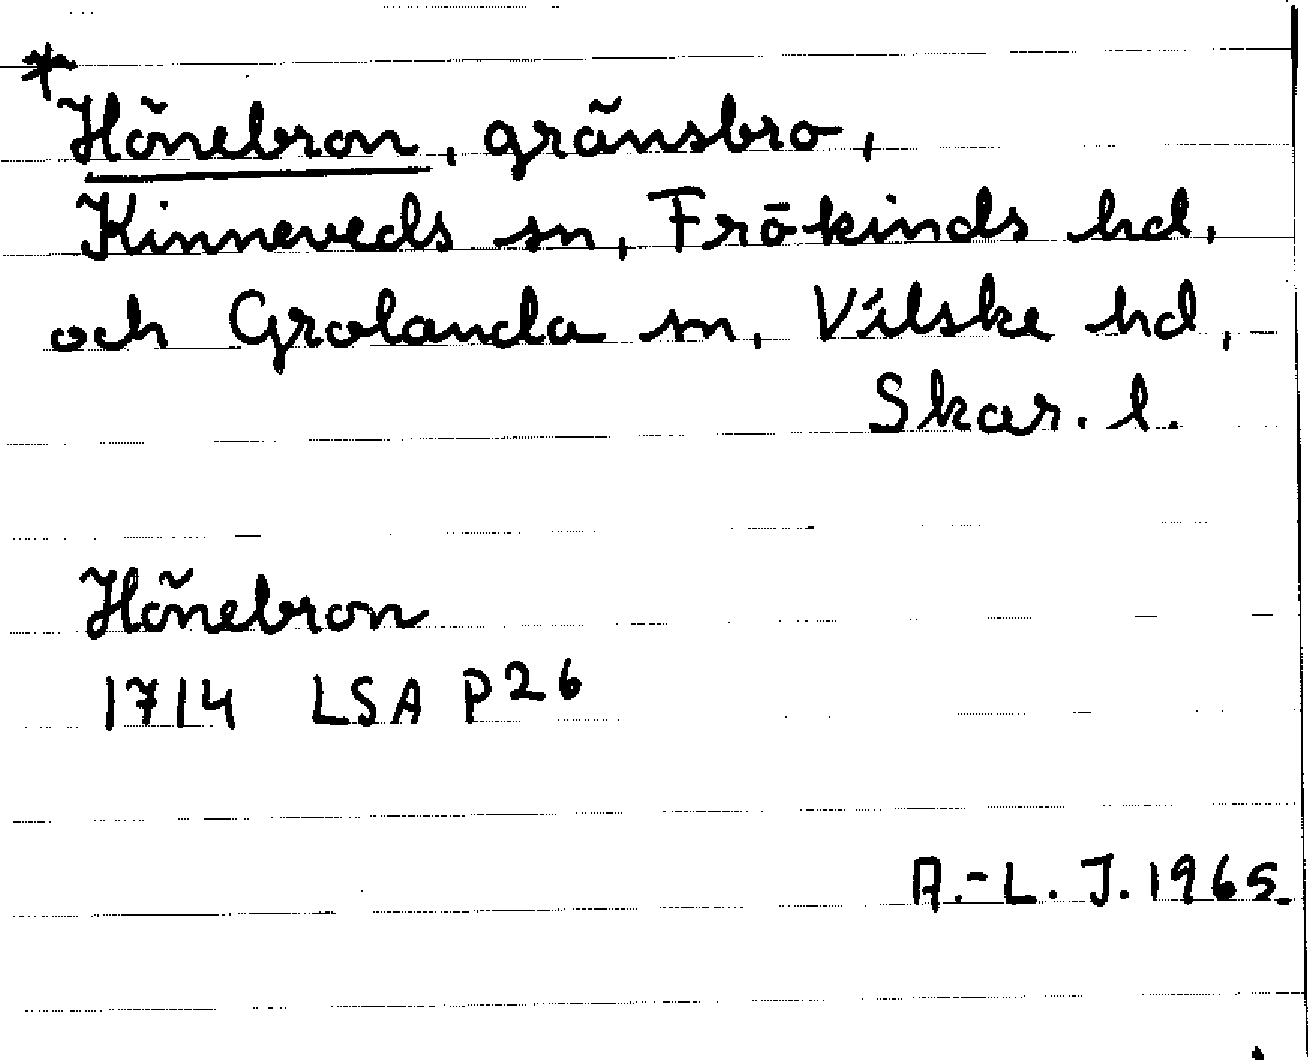 * Hönebron, gränsbro,
Kinneveds sn, Frökinds hd,
och Grolanda sn, Vilske hd,
Skar. l.
Hönebron
1714 LSA P26
A.-L. J. 1965